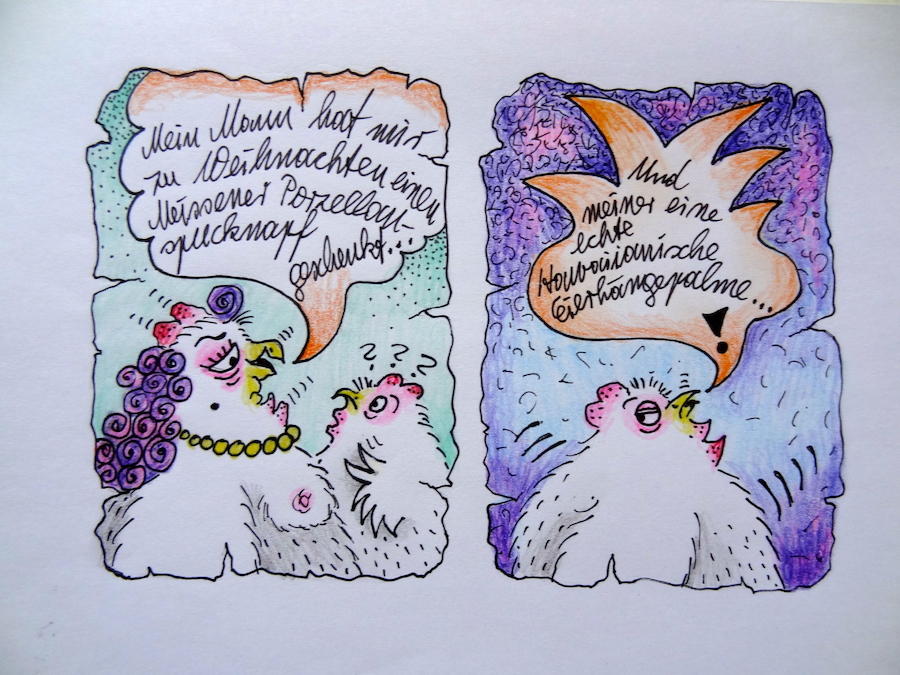 Mein Mann hat mir
zu Weihnachten einen
Meissener Porzellan-
spucknapf
geschenkt...
? ? ?
Und
meiner eine
echte
Hawaiianische
Eierhängepalme...
!